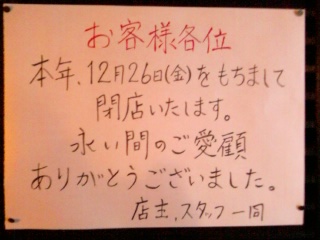 お客様各位
本年、12月26日(金)をもちまして
閉店いたします。
永い間のご愛顧
ありがとうございました。
店主、スタッフ一同